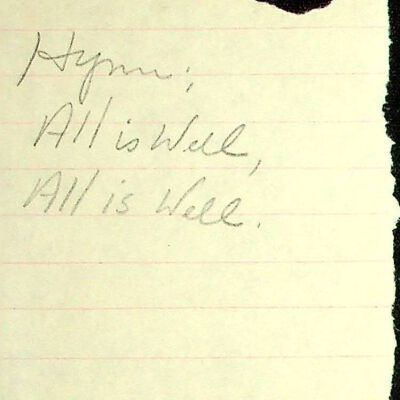 Hymn;
All is Well,
All is Well.